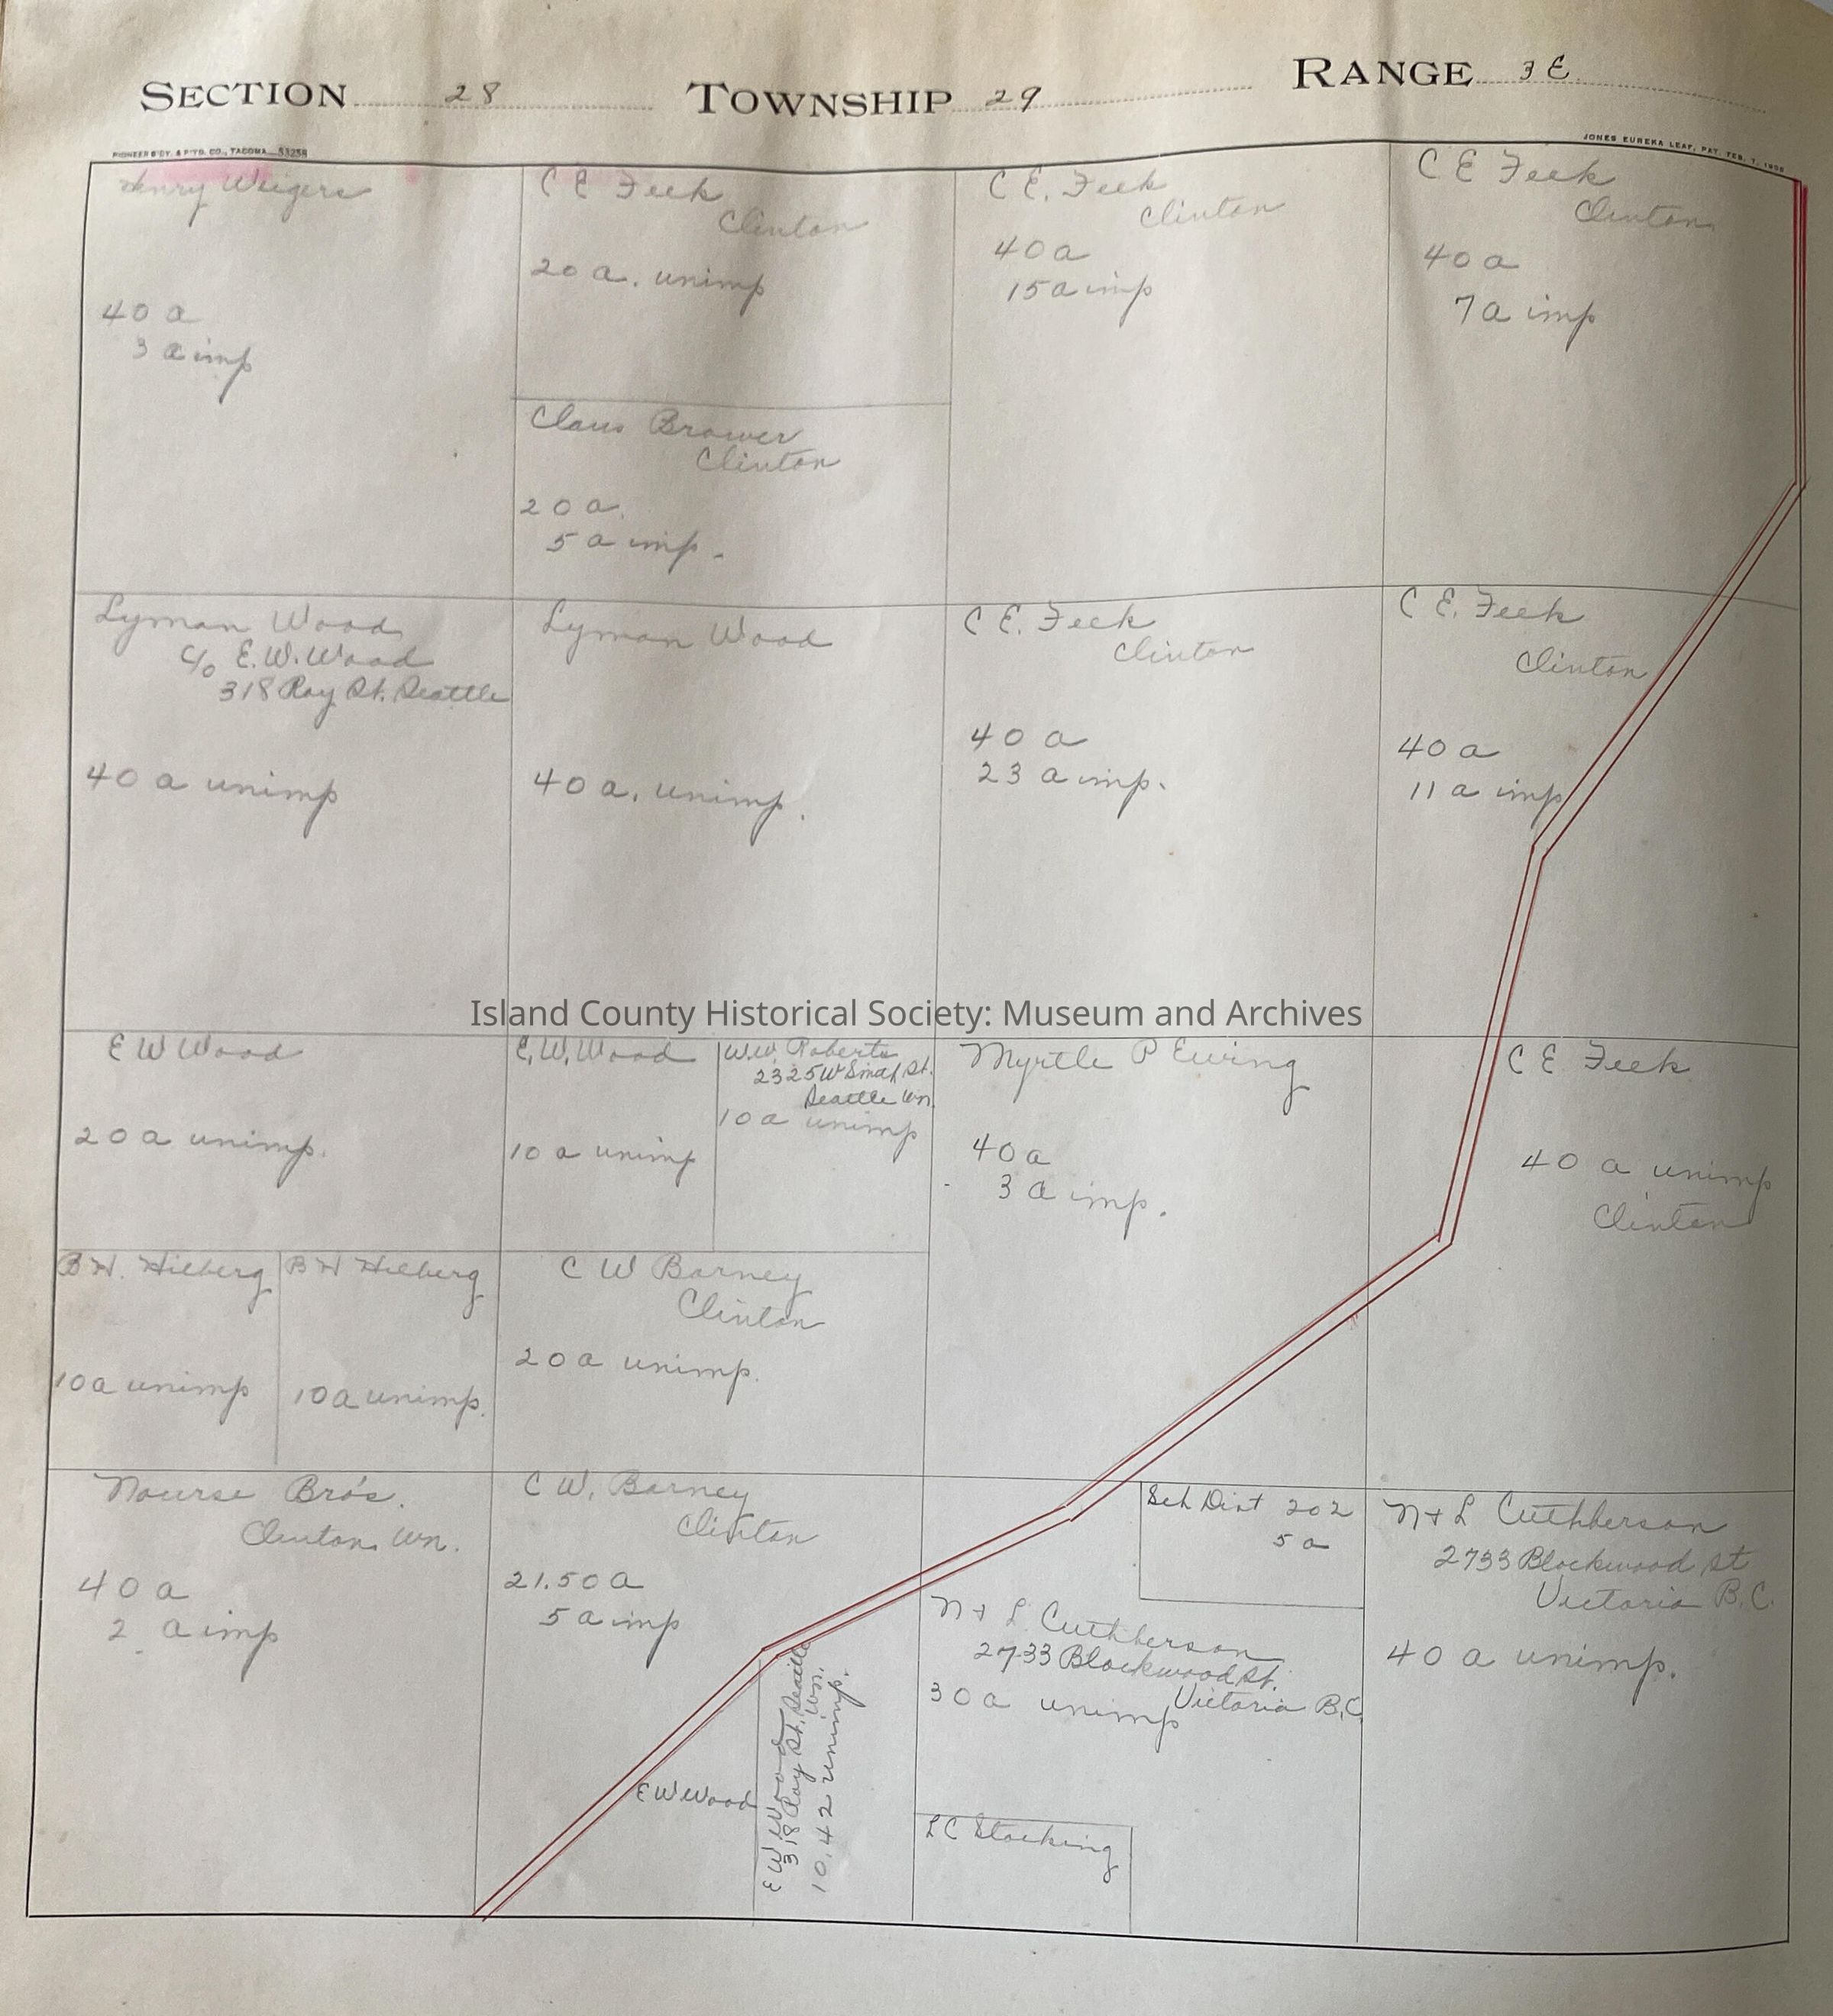 SECTION 28 TOWNSHIP 29 RANGE 3 E
PIONEER B'DY. & P'T'G. CO., TACOMA 53258
JONES EUREKA LEAF, PAT. FEB. 7, 1905
Henry Weigers
40 a
3 a imp
C E Feek
Clinton
20 a. unimp
Claus Brower
Clinton
20 a.
5 a imp.
C E. Feek
Clinton
40 a
15 a imp
C E Feek
Clinton
40 a
7 a imp
Lyman Wood
c/o E. W. Wood
318 Roy St. Seattle
40 a unimp
Lyman Wood
40 a. unimp.
C E. Feek
Clinton
40 a
23 a imp.
C E. Feek
Clinton
40 a
11 a imp
Island County Historical Society: Museum and Archives
E W Wood
20 a unimp.
E. W. Wood
10 a unimp
W. W. Roberts
2325 W St.
Seattle Wn.
10 a unimp
Myrtle P Ewing
40 a
3 a imp.
C E Feek
40 a unimp
Clinton
B H. Hilberg
10 a unimp
B H Hilberg
10 a unimp.
C W Barney
Clinton
20 a unimp.
Nourse Bro's.
Clinton, Wn.
40 a
2 a imp
C W. Barney
Clinton
21.50 a
5 a imp
E W Wood
E W Wood
318 Roy St. Seattle
Wn.
10.42 unimp.
Sch Dist 202
5 a
N + L Cuthberson
2733 Blackwood St.
Victoria B.C.
30 a unimp
L C Stocking
N + L Cuthberson
2733 Blackwood St
Victoria B.C.
40 a unimp.